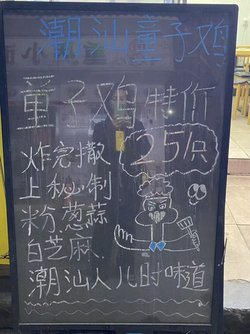 潮汕童子鸡
童子鸡特价
25/只
炸完撒
上秘制
粉葱蒜
白芝麻、
潮汕人儿时味道